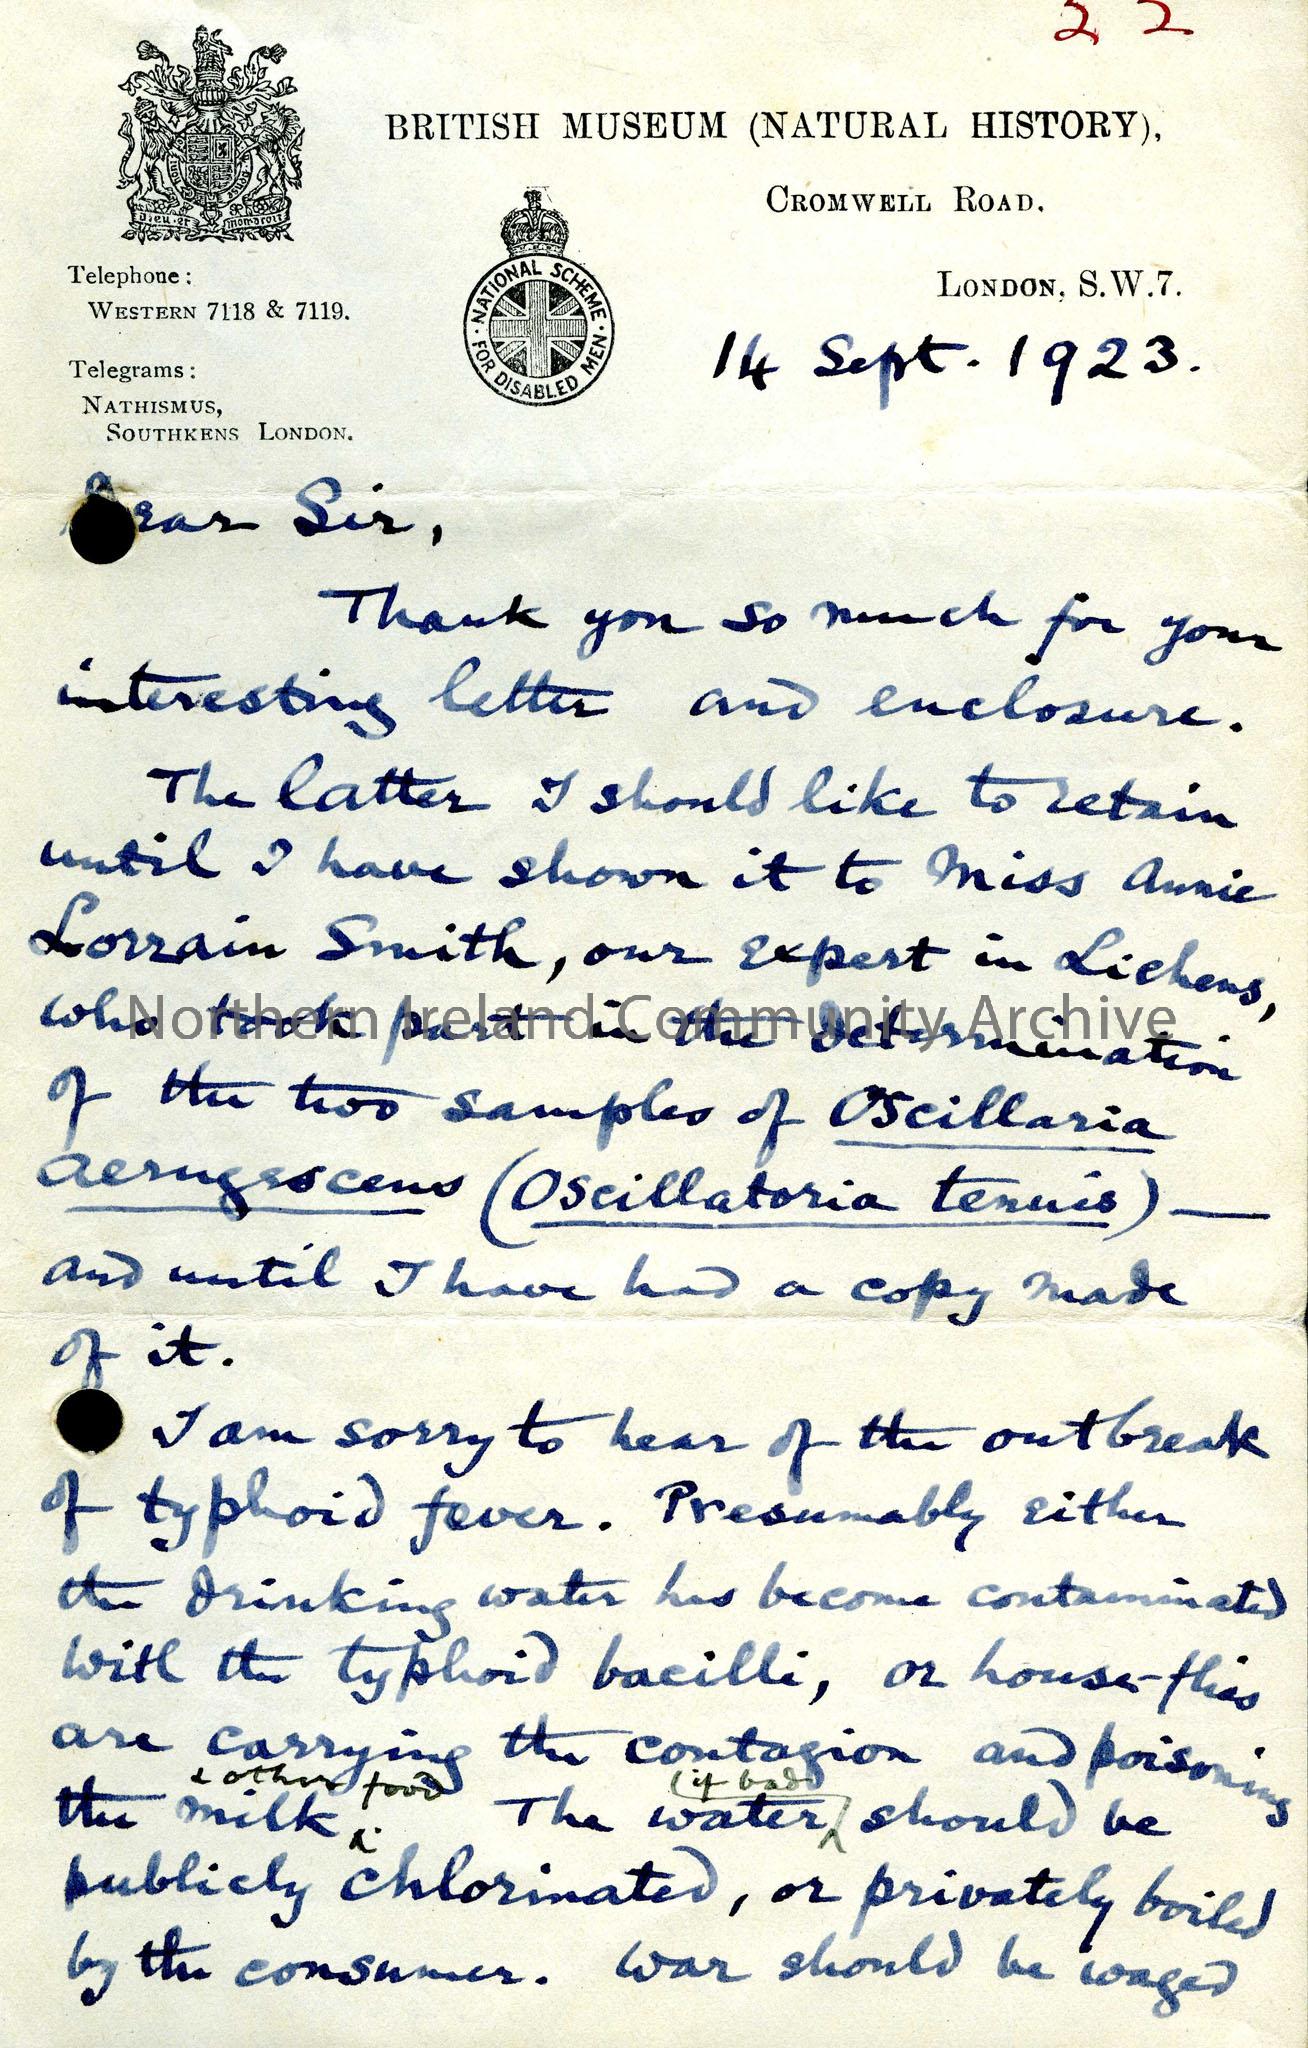 22
BRITISH MUSEUM (NATURAL HISTORY),
CROMWELL ROAD.
LONDON, S.W.7.
Telephone:
WESTERN 7118 & 7119.
Telegrams:
NATHISMUS,
SOUTHKENS LONDON.
NATIONAL SCHEME
FOR DISABLED MEN
14 Sept. 1923.
Dear Sir,
Thank you so much for your
interesting letter and enclosure.
The latter I should like to retain
until I have shown it to Miss Annie
Lorrain Smith, our expert in Lichens,
who took part in the determination
of the two samples of Oscillaria
aerugescens (Oscillatoria tenuis) —
and until I have had a copy made
of it.
I am sorry to hear of the outbreak
of typhoid fever. Presumably either
the drinking water has become contaminated
with the typhoid bacilli, or house-flies
are carrying the contagion and poisoning
& other food (if bad)
the milk. The water should be
publicly chlorinated, or privately boiled
by the consumer. War should be waged
Northern Ireland Community Archive